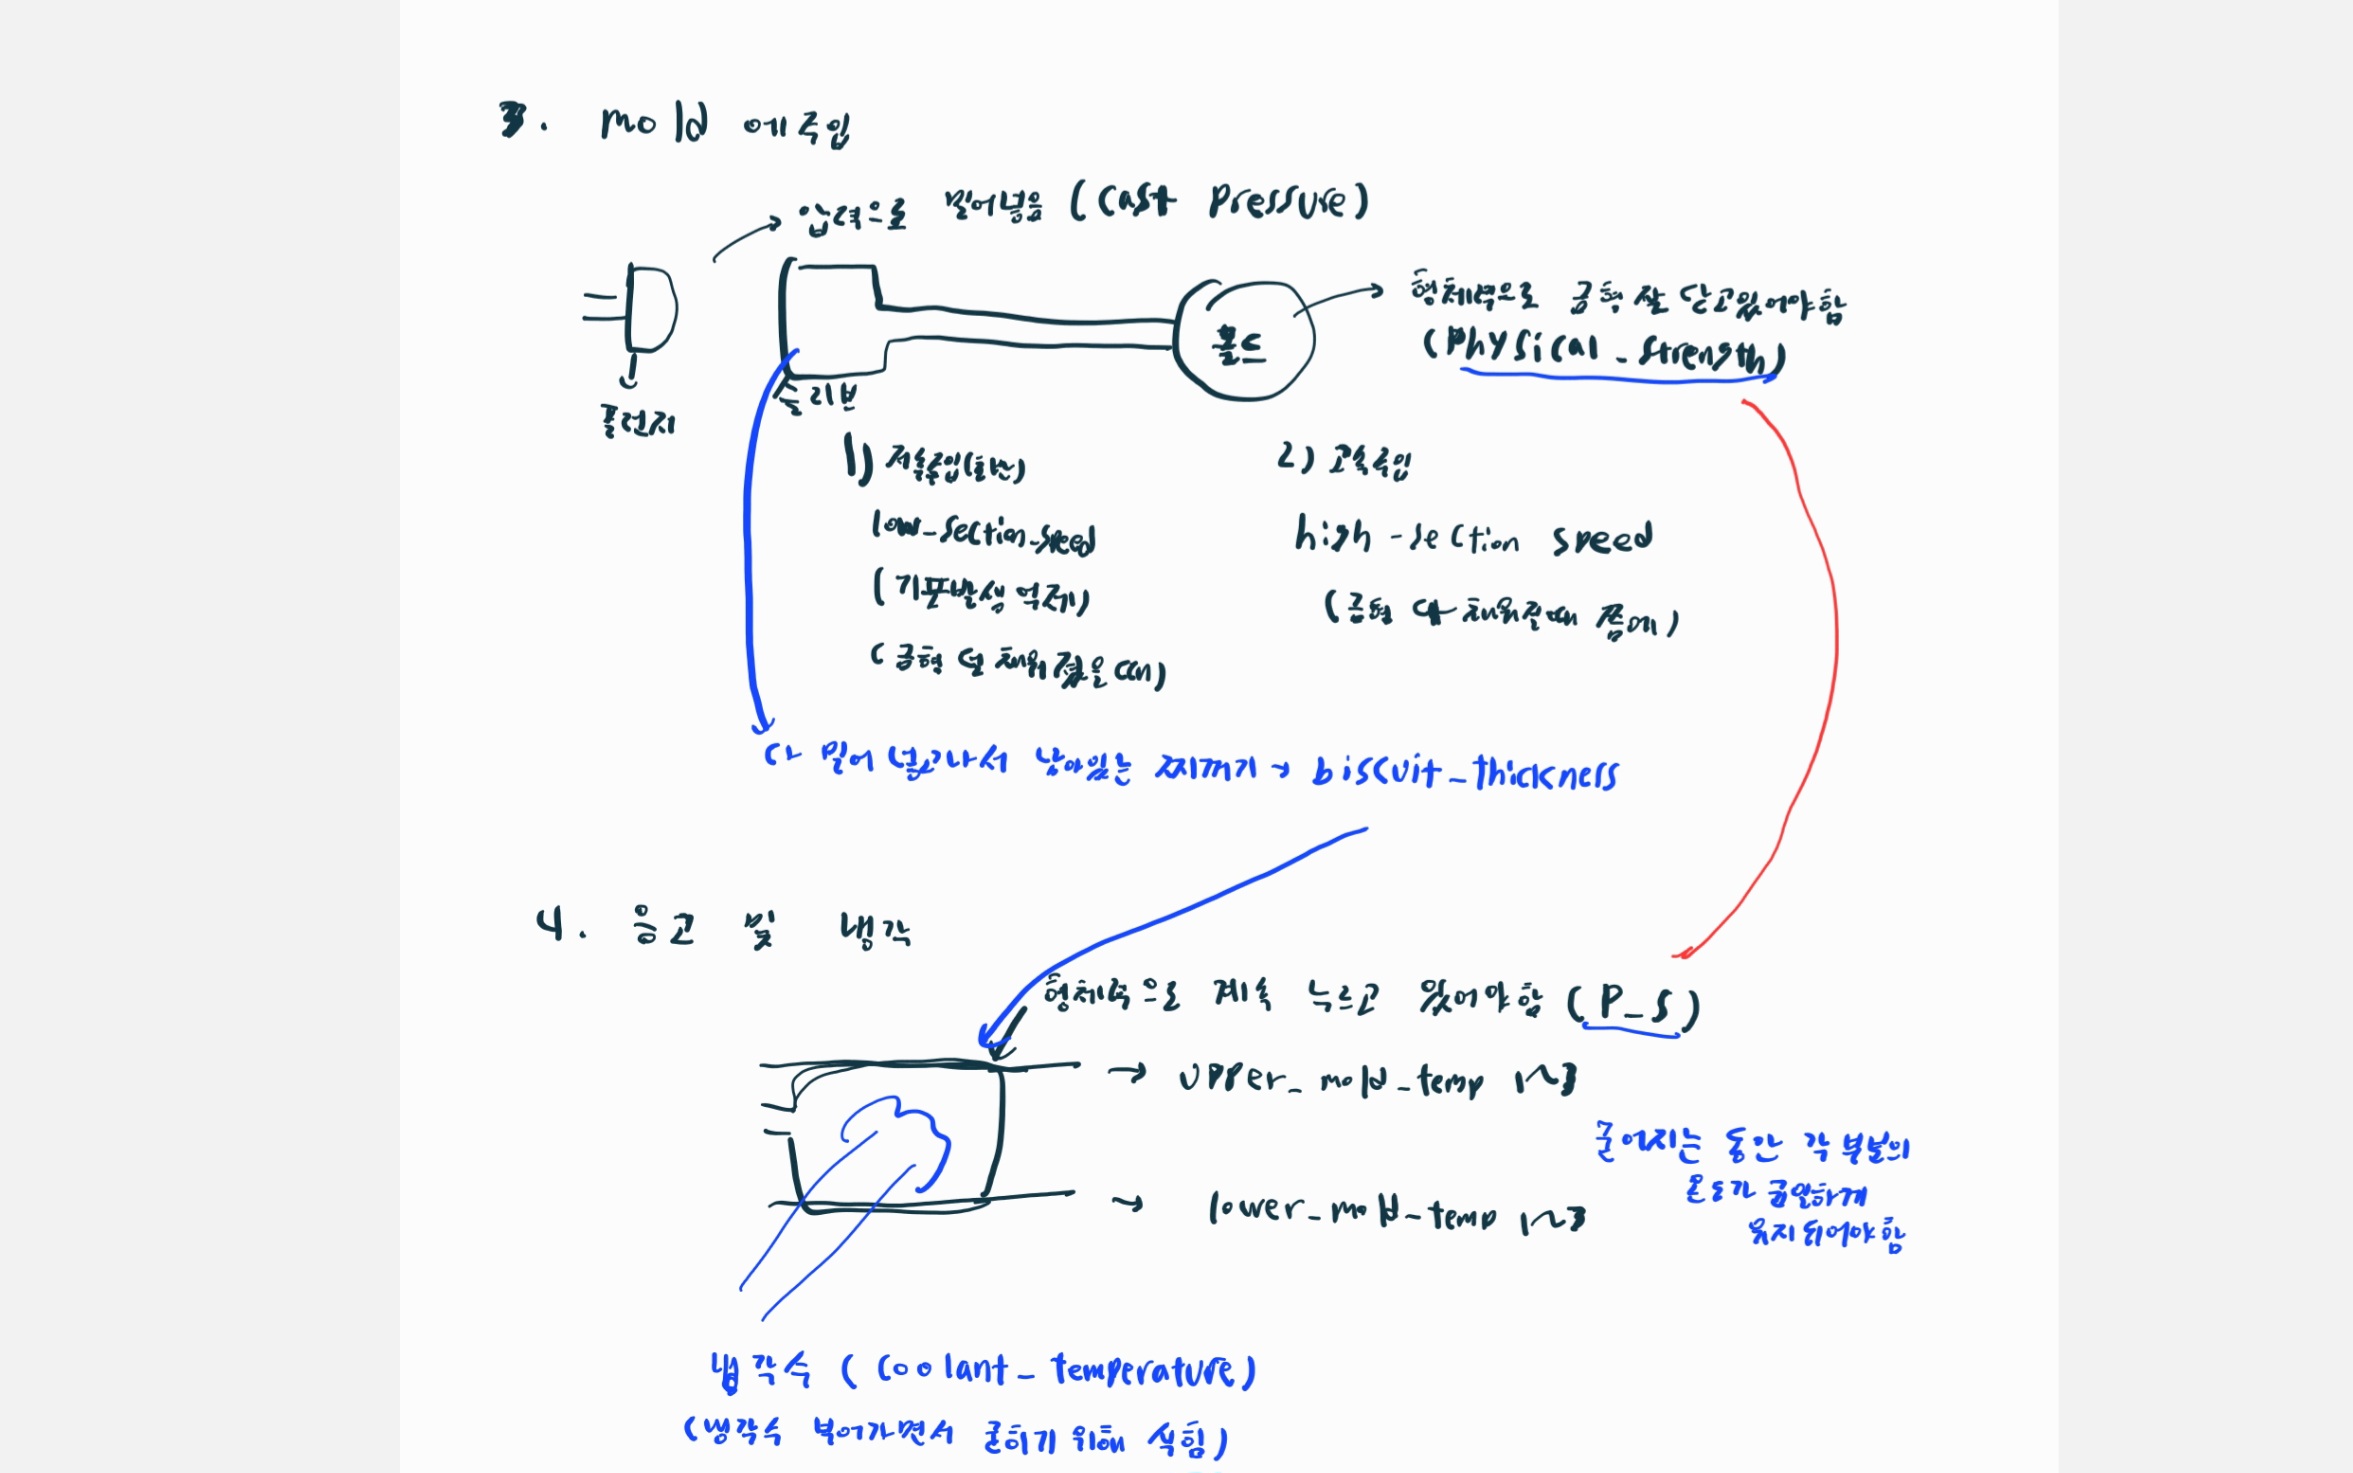 3. mold 에 주입
압력으로 밀어넣음 (Cast Pressure)
형체력으로 금형 잘 닫고있어야함
(Physical_strength)
몰드
슬리브
플런저
1) 저속주입(초반)
low_section_speed
(기포발생 억제)
(금형 덜 채워졌을때)
2) 고속주입
high-section speed
(금형 다 채워질때 쯤에)
다 밀어 넣고나서 남아있는 찌꺼기 → biscuit_thickness
4. 응고 및 냉각
형체력으로 계속 누르고 있어야함 (P_S)
→ upper_mold_temp 1~3
굳어지는 동안 각 부분의
온도가 균일하게
유지되어야함
→ lower_mold_temp 1~3
냉각수 (Coolant_temperature)
(냉각수 부어가면서 굳히기 위해 식힘)